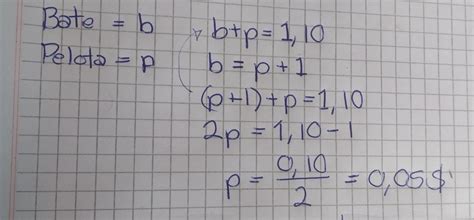 Bate = b
Pelota = p
b+p = 1,10
b = p + 1
(p+1) + p = 1,10
2p = 1,10 - 1
p = 0,10 / 2 = 0,05$